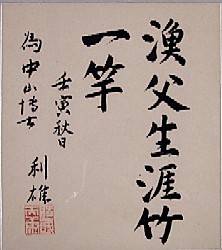 漁父生涯竹
一竿
壬寅秋日
為中山博士
利雄